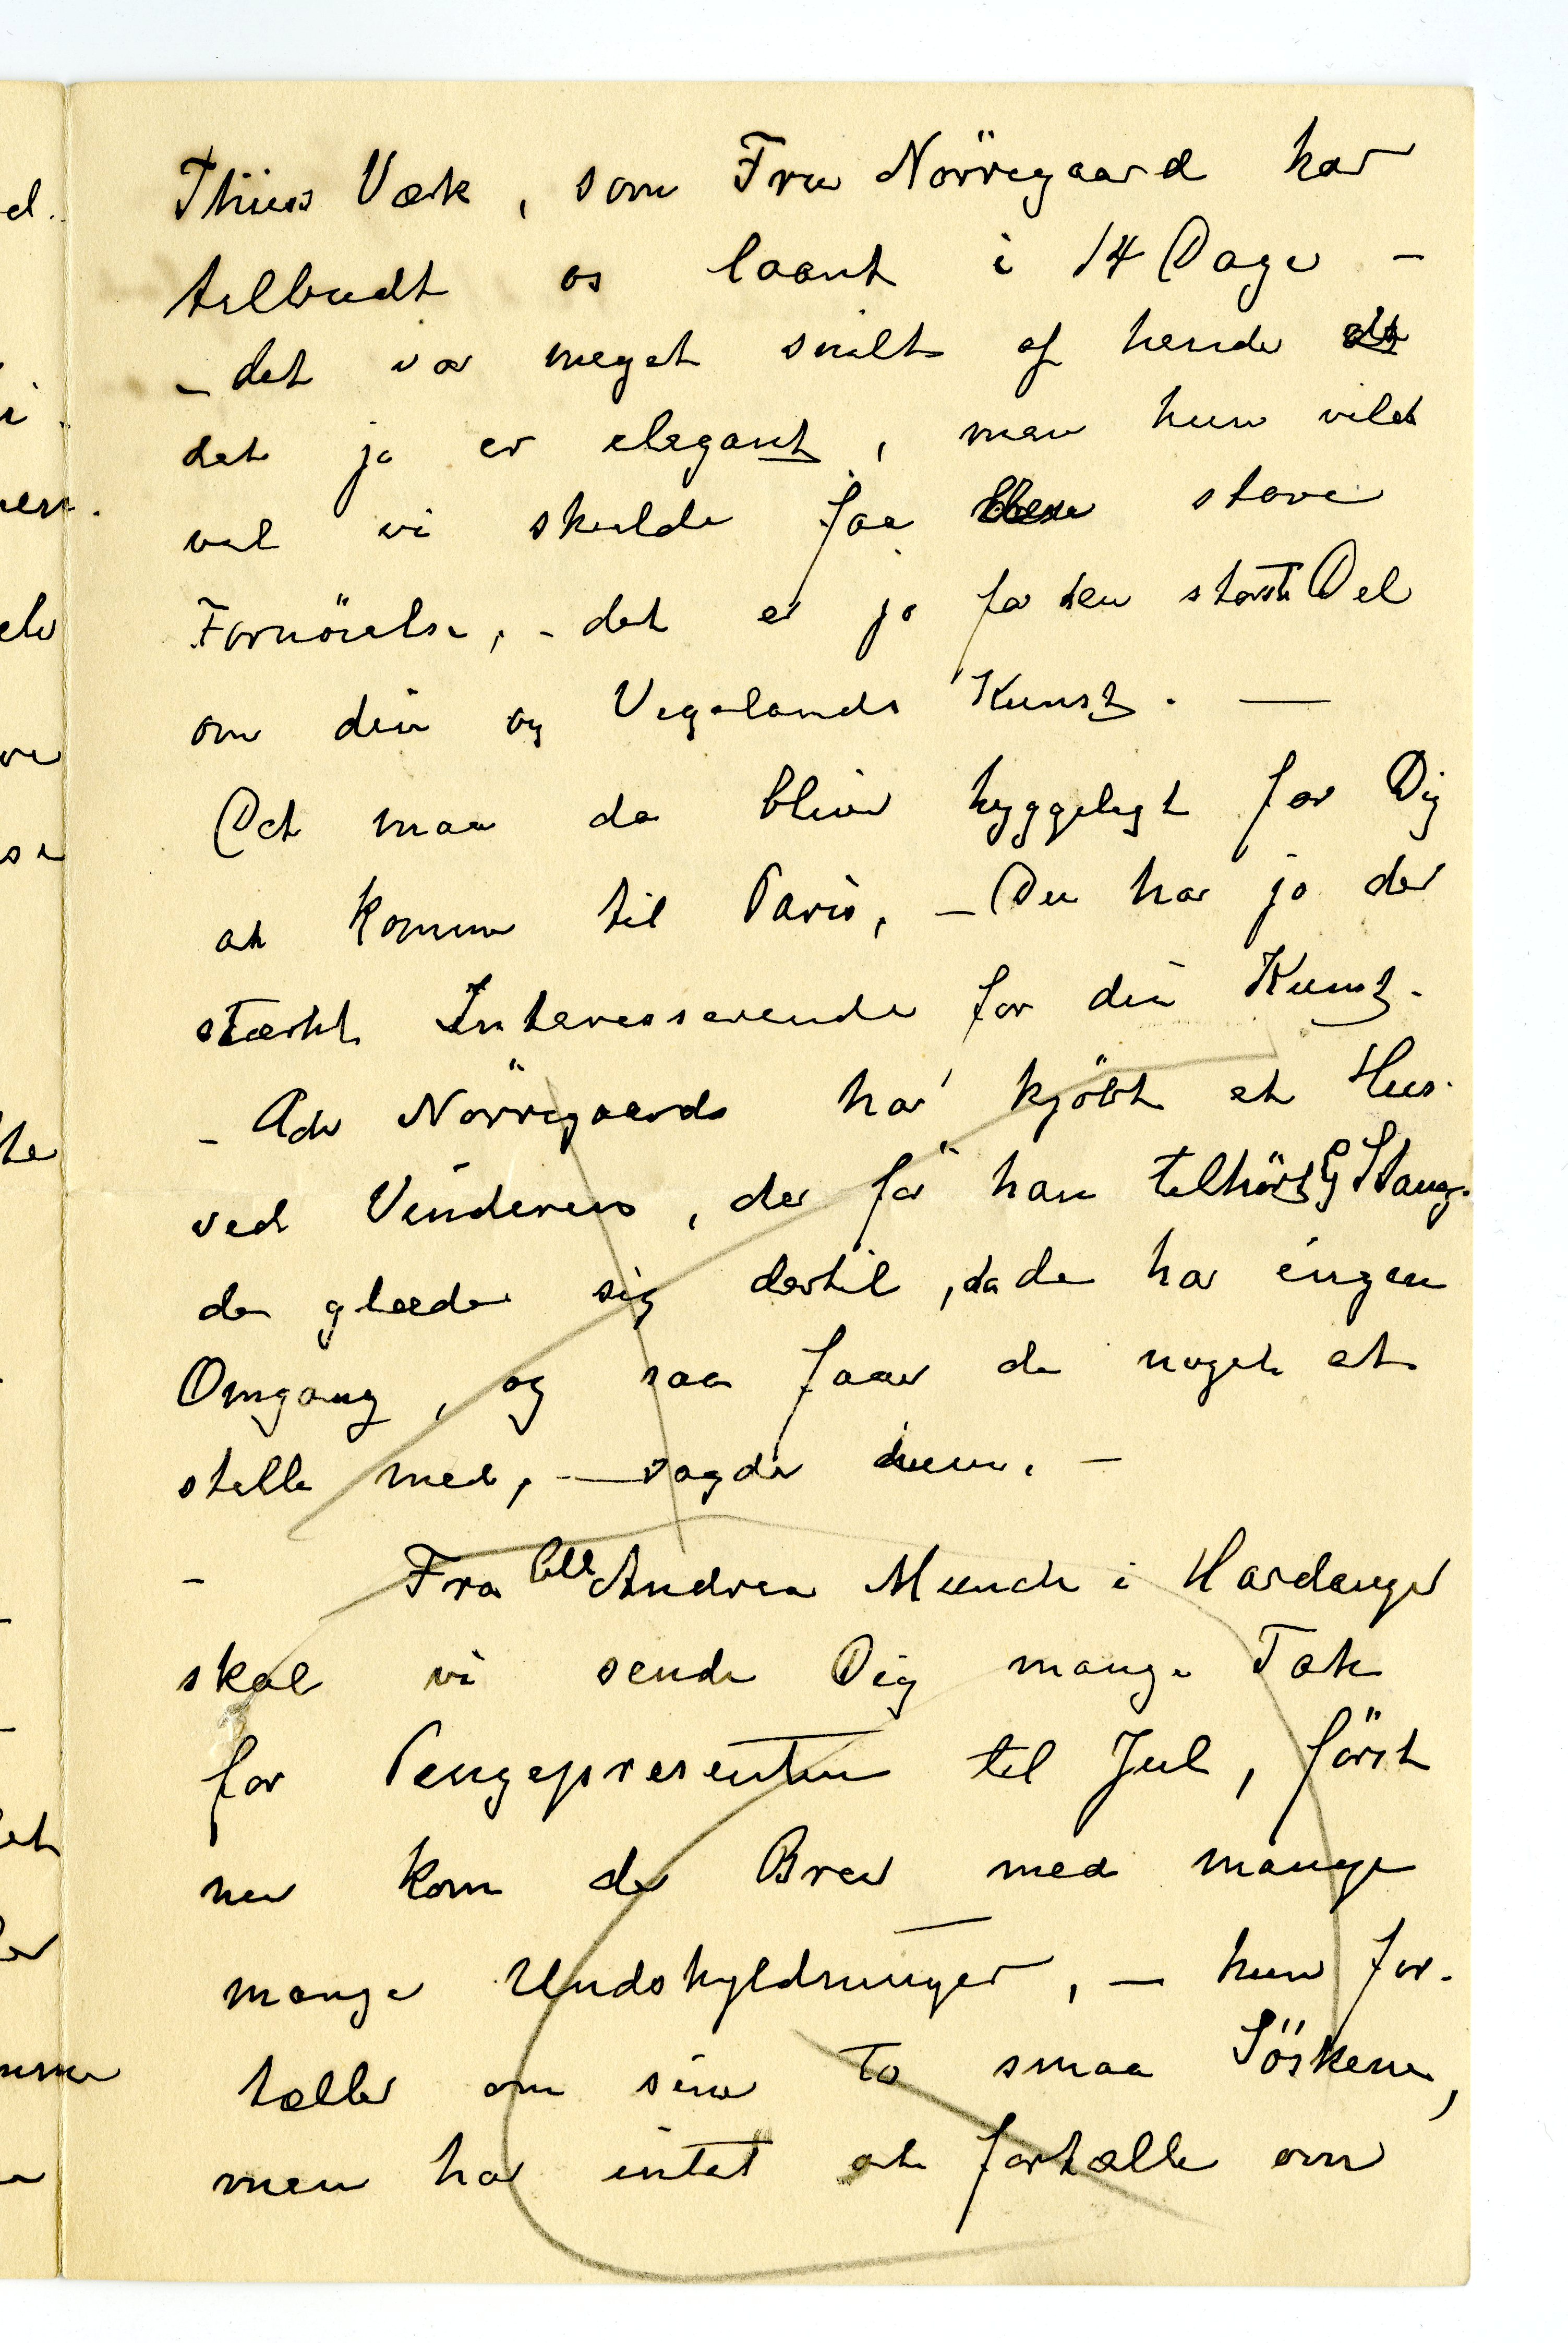 Thiiss Værk, som Fru Nörregaard har
tilbudt os laant i 14 Dage –
– det var meget snilt af hende
det jo er elegant, men hun vilde
vel vi skulde faa store
Fornöielse, – det er jo for den störste Del
om din og Vigelands Kunst. —
Det maa da blive hyggeligt for Dig
at komme til Paris, – Du har jo der
stærkt Interesserende for din Kunst.
– Adv Nörregaards har kjöbt et Hus
ved Vinderen, der för har tilhört G Stang.
de glæder sig dertil, da de har ingen
Omgang, og saa faar de noget at
stelle med, — sagde hun. –
– Fra lille Andrea Munch i Hardanger
skal vi sende Dig mange Tak
for Pengepresenten til Jul, först
nu kom der Brev med mange
mange Undskyldninger, – hun for-
tæller om sine to smaa Söskene,
men har intet at fortælle om